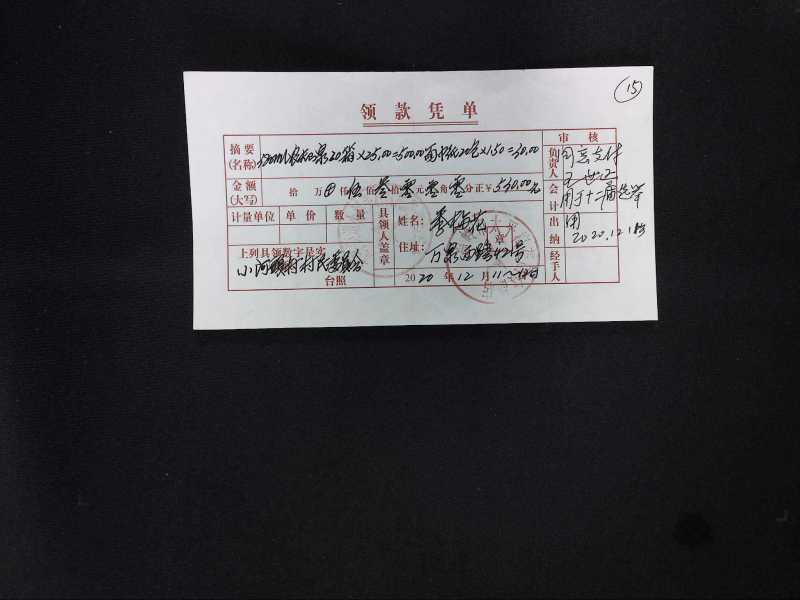 15
领款凭单
审核
摘要
(名称)
20箱×25.00=500.00 20包×1.50=30.00
负责人
同意支付
金额
(大写)
拾万仟伍佰叁拾零元零角零分正¥530.00元
会计
用于十二届选举
用
2020.12
计量单位 单价 数量
具领人盖章
姓名: 李梅花
住址: 万泉西路42号
出纳
上列具领数字是实
小河头村村民委员会
台照
2020年12月11
经手人